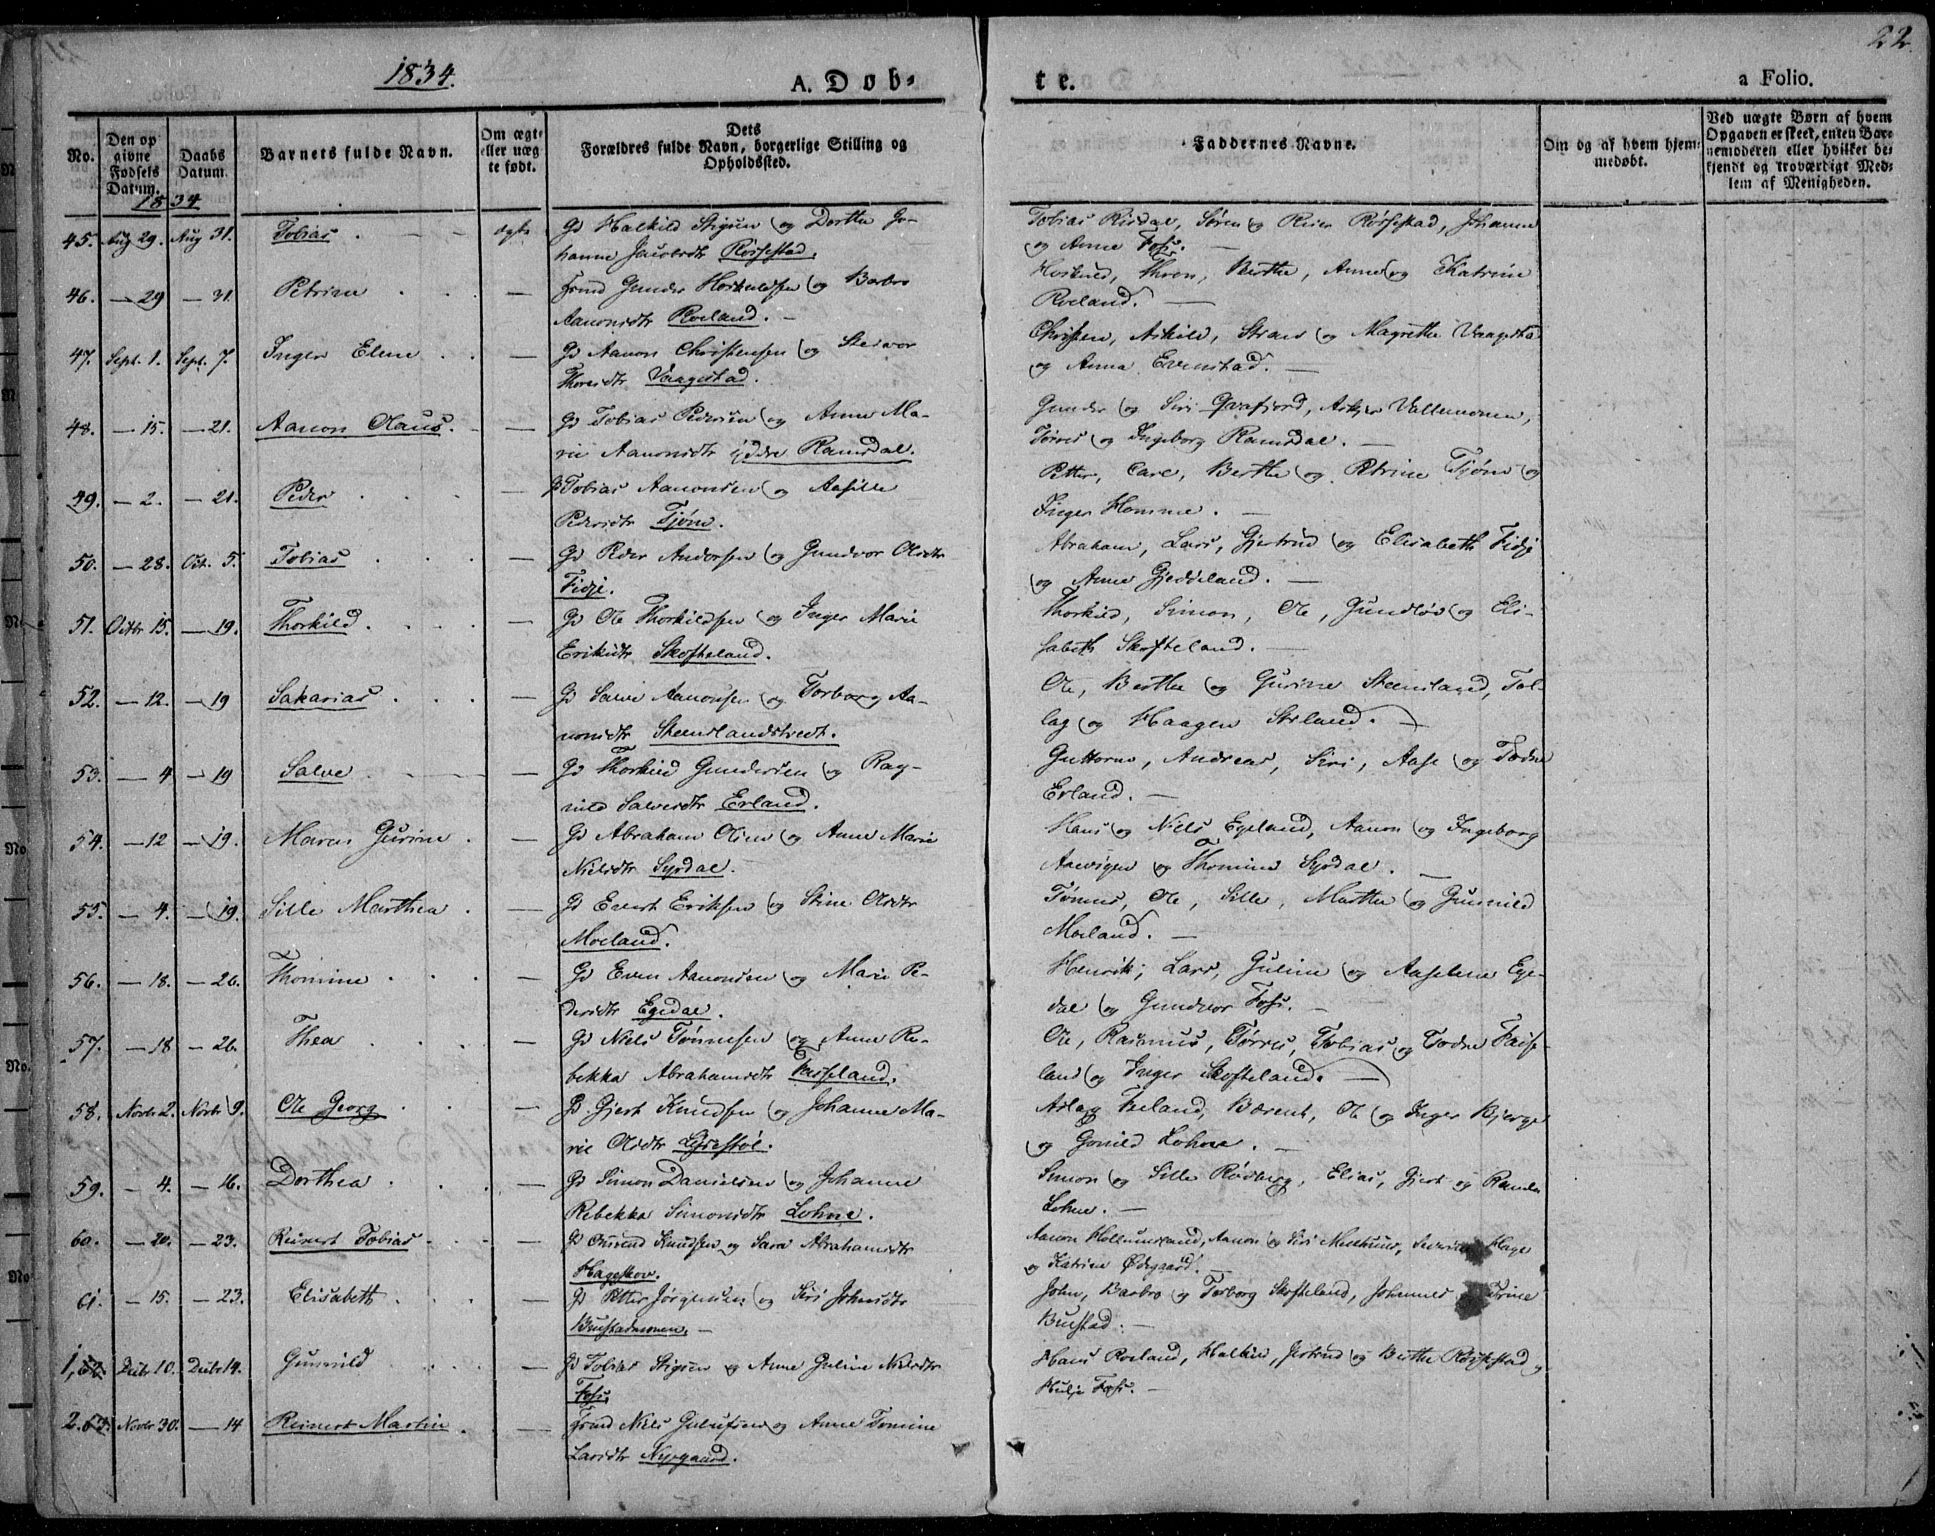 1834.
A. Døb-
te.
22.
a Folio.
No.
Den op
givne
Fødsels
Datum.
Daabs
Datum.
Barnets fulde Navn.
Om ægte
eller uæg
te født.
Dets
Forældres fulde Navn, borgerlige Stilling og
Opholdssted.
Faddernes Navne.
Om og af hvem hjem-
medøbt.
Ved uægte Børn af hvem
Opgaven er skeet, enten Bar-
nemoderen eller hvilket be-
kjendt og troværdigt Med-
lem af Menigheden.
1834
45. Aug 29. Aug 31. Tobias . ægte Gd Halkild Stigsen og Dorthe Jo-
hanne Jacobsdtr Rossestad. Tobias Risdal, Søren og Reier Rossestad, Johanne
og Anne Foss.
46. — 29 — 31. Petrine . — Gunder Hoskuldsen og Barbro
Aanonsdtr Roeland. Hoskuld, Thron, Berthe, Anne og Katrine
Roeland.
47. Sept. 1. Sept. 7. Inger Eline . — Gd Aanon Christensen og Steivor
Thorsdtr Vaagestad. Christen, Askild, og Magrethe Vaagesta
og Anna Evenstad.
48. — 15. — 21. Aanon Olaus. — Gd Tobias Pedersen og Anne Ma-
rie Aanonsdtr ydre Ramsdal. Gunder og Siri Qvafjord, Vallemonen,
Tørres og Ingeborg Ramsdal.
49. — 2. — 21. Peder . — Tobias Aanonsen og Aasille
Pedersdtr Tjøm. Petter, Carl, Berthe og Petrine Tjøm og
Inger Homme.
50. — 28. Oct. 5. Tobias . — Gd Peder Andersen og Gundvor Olsdtr
Fidje. Abraham, Lars, Gjertrud og Elisabeth Fidje
og Anne Gjeddeland.
51. Octbr 15. — 19. Thorkild. — Gd Ole Thorkildsen og Inger Marie
Eriksdtr Skofteland. Thorkild, Simon, Ole, Gundlov og Eli-
sabeth Skofteland.
52. — 12. — 19 Sakarias . — Gd Salve Aanonsen og Torborg Aa-
nonsdtr Steenslandstvedt. Ole, Berthe og Gurine Steensland, Tol-
lag og Haagen
53. — 4 — 19 Salve — Gd Thorkild Gundersen og Rag-
nild Salvesdtr Erland. Guttorm, Andreas, Siri, Aase og Todne
Erland.
54. — 12 — 19. Maren Gurine. — Gd Abraham Olsen og Anne Marie
Nielsdtr Syrdal. Hans og Niels Egeland, Aanon og Ingeborg
og Thomine Syrdal.
55. — 4. — 19. Sille Marthea . — Gd Evert Eriksen og Stine Olsdtr
Moeland. Tønnes, Ole, Sille, Marthe og Gunnild
Moeland.
56. — 18. — 26. Thomine . — Gd Even Aanonsen og Marie Pe-
dersdtr Egedal. Henrik, Lars, Guline og Aaselene Ege-
dal og Gundvor Foss.
57. — 18 — 26. Thea . — Gd Niels Tønnesen og Anne Re-
bekka Abrahamsdtr Faseland. Ole, Rasmus, Tørres, Tobias og Todne Faise-
land og Inger Skofteland.
58. Novbr 2. Novbr 9. Ole Georg . — Gd Gjert Knudsen og Johanne Ma-
rie Olsdtr Aslag Bærent, Ole og Inger Bjerge
og Gonild Lohne.
59. — 4. — 16. Dorthea . — Gd Simon Danielsen og Johanne
Rebekka Simonsdtr Lohne. Simon og Sille Rødberg, Elias, Gjert og
Lohne.
60. — 20. — 23. Reinert Tobias. — Gd Knudsen og Sara Abrahamsdtr
Hageskov. Aanon Hollumsland, Aanon og Siri
og Katrine Ødegaard.
61. — 15. — 23. Elisabeth . — Gd Peter Jørgensen og Siri Johnsdtr
Brustadmonen. John, Barbro og Torborg Skofteland, Johannes og Trine
Brustad.
1,62. Decbr 10. Decbr 14. Gunnild — Gd Tobias Stigsen og Anne Guline Nielsdtr
Foss. Hans Roeland, Halkild, Jertrud og Berthe Rossestad og
Foss.
2.63. Novbr 30. — 14 Reinert Martin . — Niels og Anne Tomine
Larsdtr Nygaard.